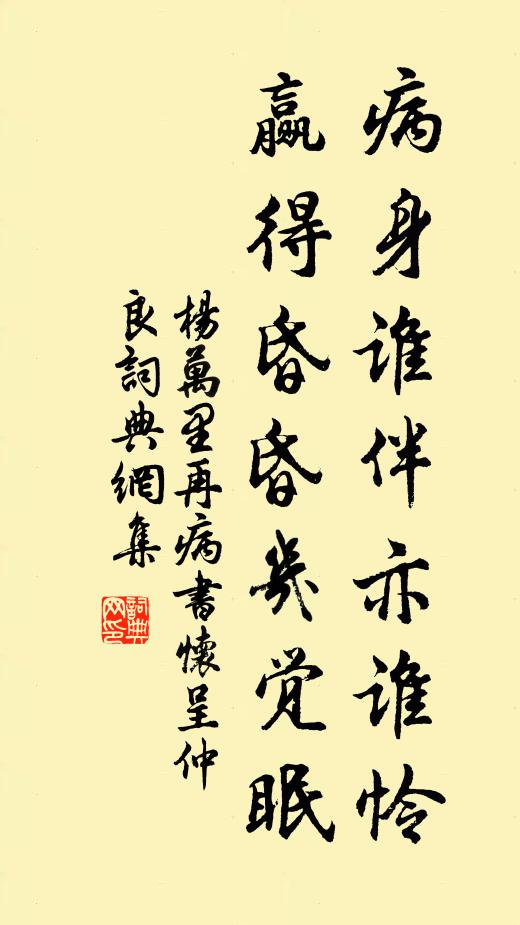 病身誰伴亦誰怜
贏得昏昏幾觉眠
楊萬里再病書懷呈仲
良詞典網集
詞典
网印